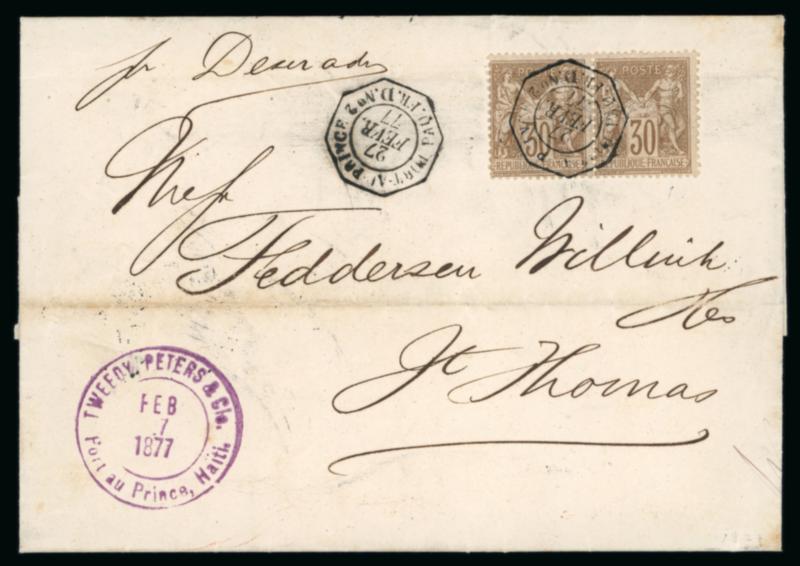 pr Desirade
PORT-AU-PRINCE PAQ.FR.D.No2
27
FEVR.
77
POSTE
30
REPUBLIQUE FRANÇAISE
POSTE
30
REPUBLIQUE FRANÇAISE
27
FEVR.
Messrs
Feddersen Willink
St Thomas
TWEEDY, PETERS & Cie.
FEB
7
1877
Port au Prince, Haïti.